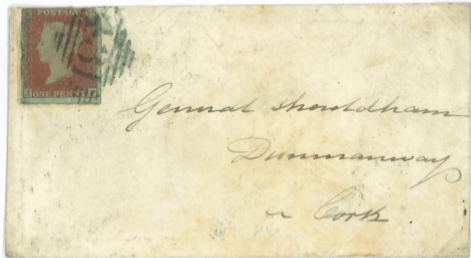 POSTAGE
ONE PENNY
General Shouldham
Dunmanway
Cork